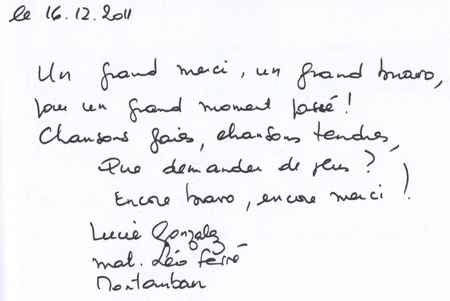 le 16.12.2011
Un grand merci, un grand bravo,
pour un grand moment passé !
Chansons gaies, chansons tendres,
Que demander de plus ?
Encore bravo, encore merci !
Lucie Gonzalez
mat. Léo Ferré
Montauban